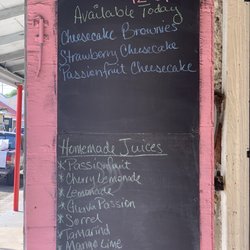 Available Today
Cheesecake Brownies
Strawberry Cheesecake
Passionfruit Cheesecake
Homemade Juices
* Passionfruit
* Cherry Lemonade
* Lemonade
* Guava Passion
* Sorrel
* Tamarind
* Mango Lime